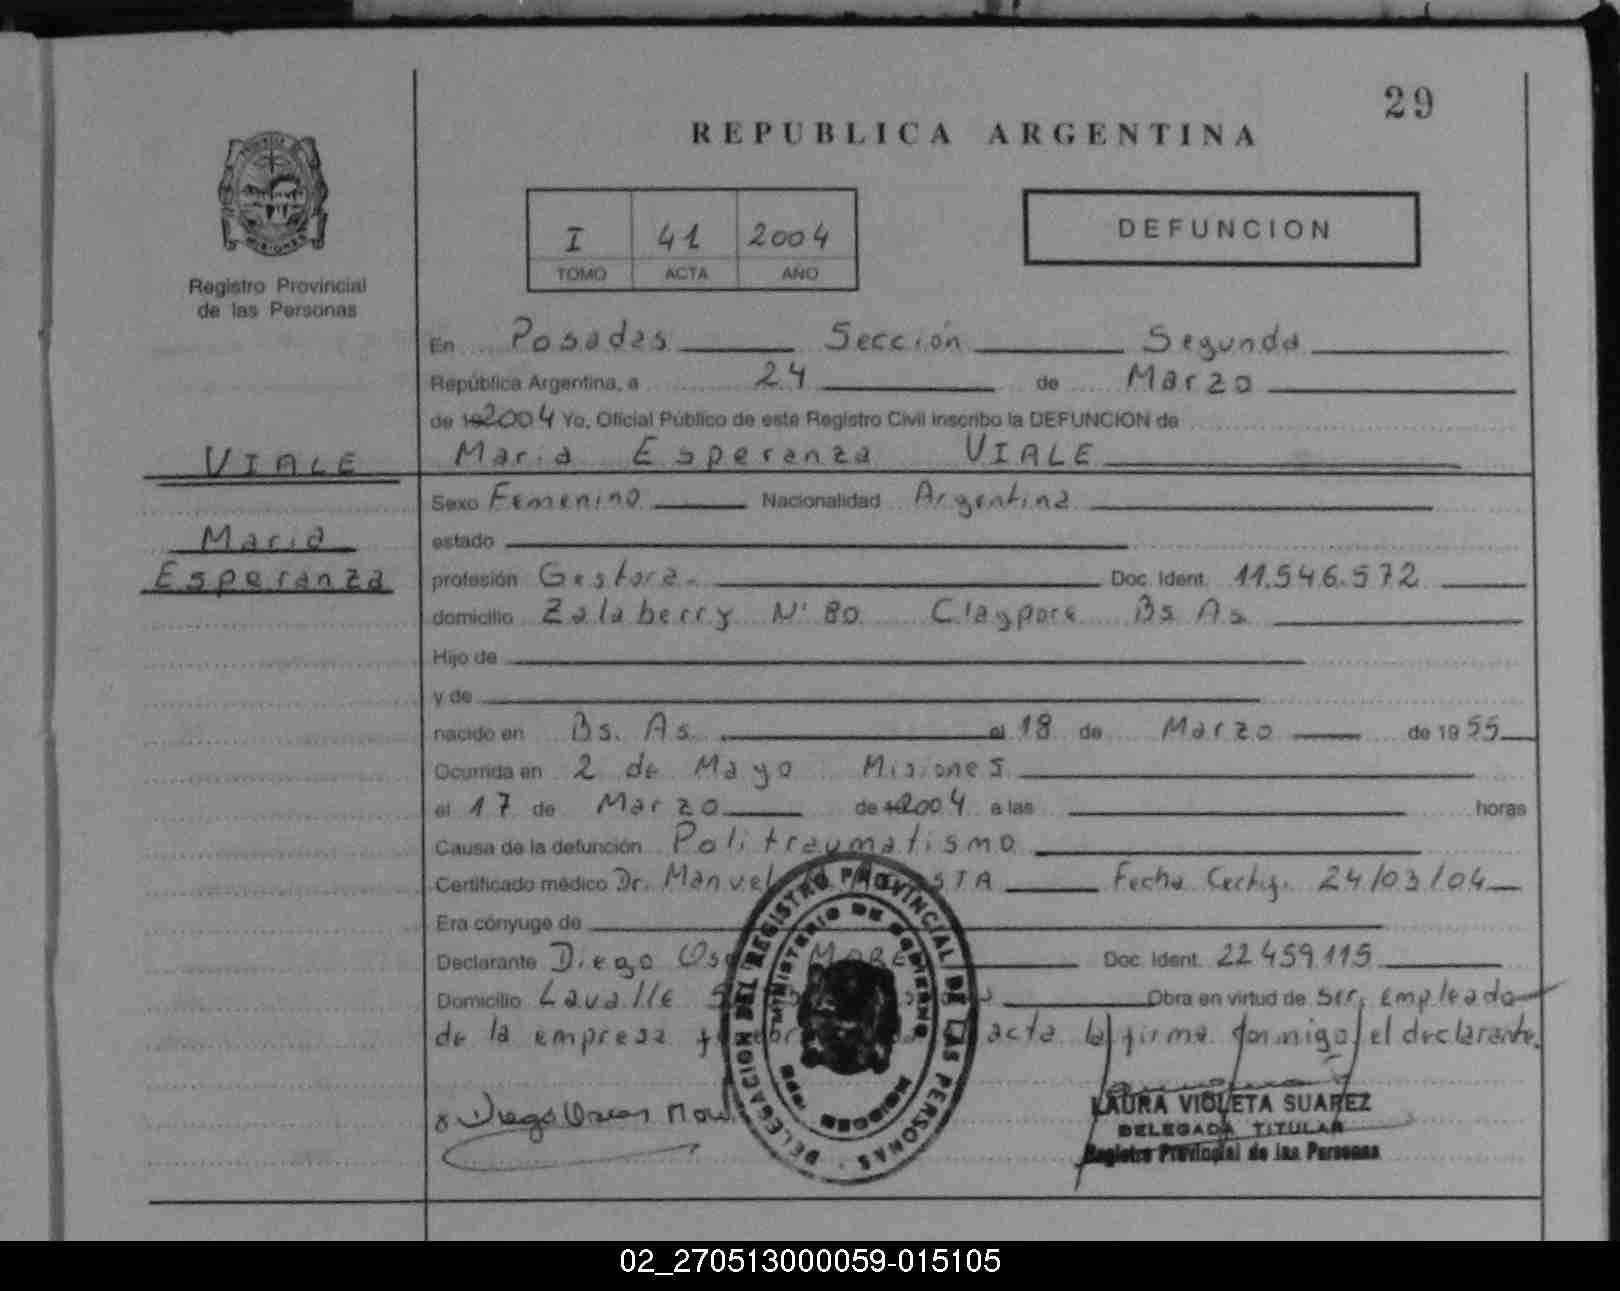 29
REPUBLICA ARGENTINA
I 41 2004
TOMO ACTA AÑO
DEFUNCION
MISIONES
Registro Provincial
de las Personas
En Posadas Sección Segunda
República Argentina, a 24 de Marzo
de 19 2004 Yo, Oficial Público de este Registro Civil inscribo la DEFUNCION de
VIALE
Maria Esperanza VIALE
Sexo Femenino Nacionalidad Argentina
Maria
estado
Esperanza
profesión Gestora. Doc. Ident. 11.546.572
domicilio Zalaberry N° 80 Claypore Bs As
Hijo de
y de
nacido en Bs. As. el 18 de Marzo de 19 55
Ocurrida en 2 de Mayo Misiones
el 17 de Marzo de 2004 a las horas
Causa de la defunción Politraumatismo
Certificado médico Dr. Manuel Fecha Certif. 24/03/04
Era cónyuge de
Declarante Diego Doc. Ident. 22 459.115
Domicilio Lavalle Obra en virtud de ser, empleado
de la empresa acta la firma conmigo el declarante.
DELEGACION DEL REGISTRO PROVINCIAL DE LAS PERSONAS
MINISTERIO DE GOBIERNO
MISIONES
Diego Oscar
LAURA VIOLETA SUAREZ
DELEGADA TITULAR
Registro Provincial de las Personas
02_270513000059-015105